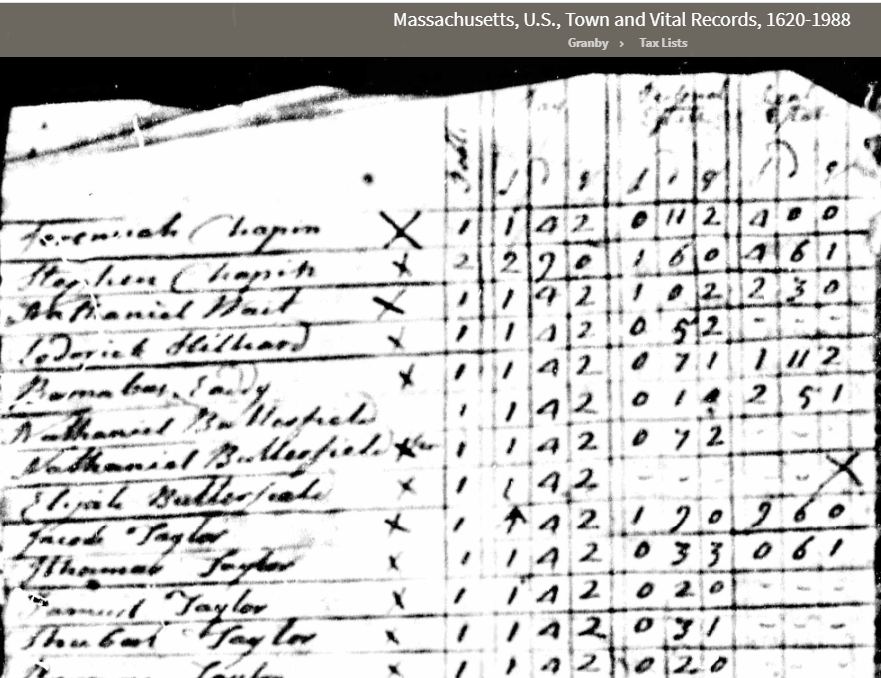 Massachusetts, U.S., Town and Vital Records, 1620-1988
Granby › Tax Lists
Personal Real
Estate Estate
Jeremiah Chapin X 1 1 4 2 0 11 2 4 0 0
Stephen Chapin x 2 2 9 0 1 6 0 4 6 1
Nathaniel Wait X 1 1 4 2 1 0 2 2 3 0
Roderick Hilliard x 1 1 4 2 0 5 2 - - -
Barnabas Eady x 1 1 4 2 0 7 1 1 11 2
Nathaniel Butterfield 1 1 4 2 0 1 2 5 1
Nathaniel Butterfield x 1 1 4 2 0 7 2 - - -
Elijah Butterfield x 1 1 4 2 - - - - - X
Jacob Taylor x 1 1 4 2 1 9 0 9 6 0
Thomas Taylor x 1 1 4 2 0 3 3 0 6 1
Samuel Taylor x 1 1 4 2 0 2 0 - - -
Taylor x 1 1 4 2 0 3 1 - - -
Taylor x 1 1 4 2 0 2 0